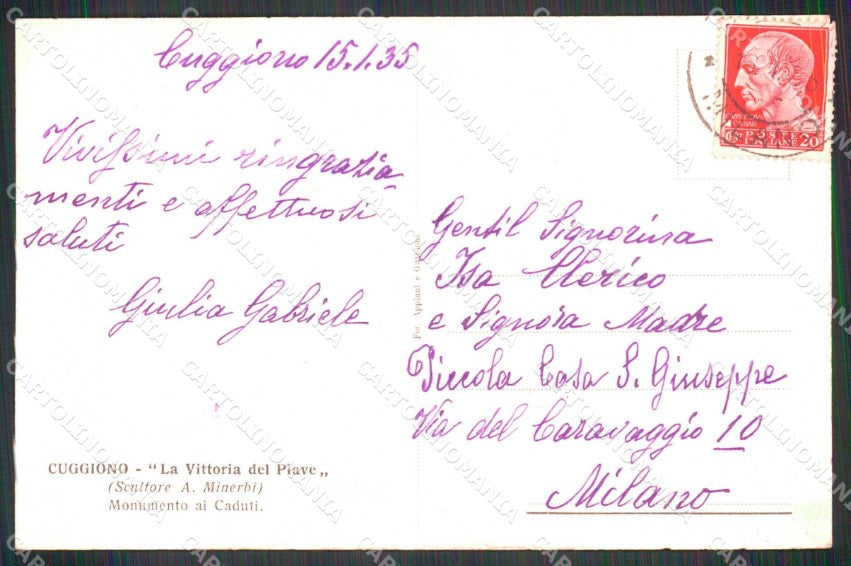 Cuggiono 15.1.35
Vivissimi ringrazia-
menti e affettuosi
saluti
Giulia Gabriele
CUGGIONO - "La Vittoria del Piave„
(Scultore A. Minerbi)
Monumento ai Caduti.
Fot. Appiani e
POSTE
ITALIANE 20
Gentil Signorina
Isa Clerico
e Signora Madre
Piccola Casa S. Giuseppe
Via del Caravaggio 10
Milano
CARTOLINOMANIA